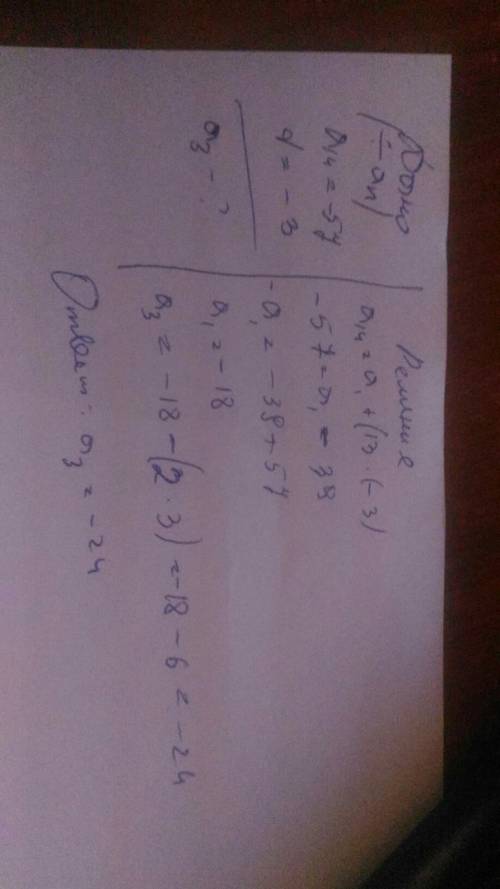 Дано
(÷ an)
a14 = -57
d = -3
a3 - ?
Решение
a14 = a1 + (13 · (-3)
-57 = a1 = 39
-a1 = -39 + 57
a1 = -18
a3 = -18 - (2 · 3) = -18 - 6 = -24
Ответ: a3 = -24